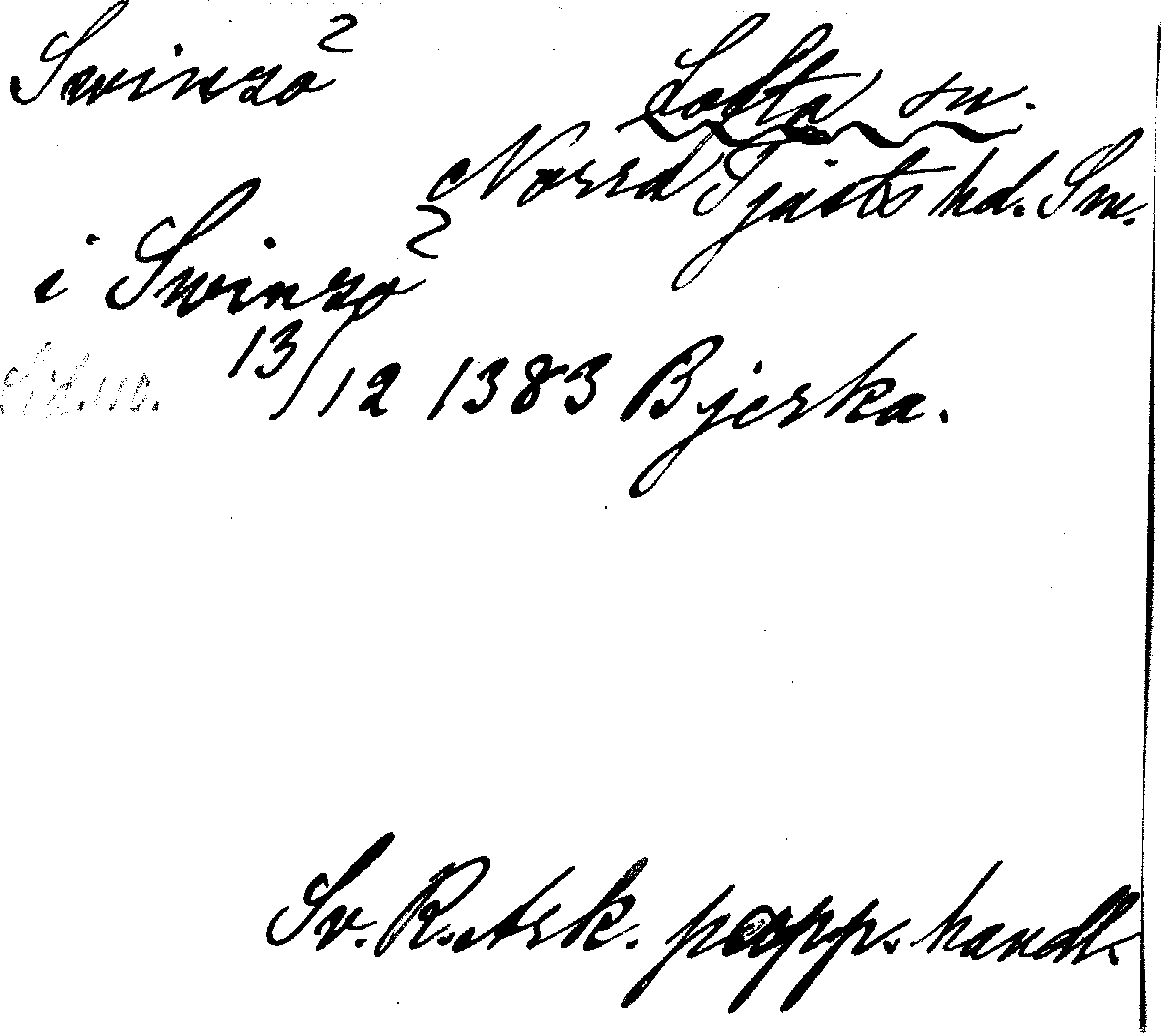 Swinzo²
Lofta sn.
Norra Tjusts hd. Sm.
i Swinzo²
13/12 1383 Bjerka.
Sv. R. Ark. papp. handl.